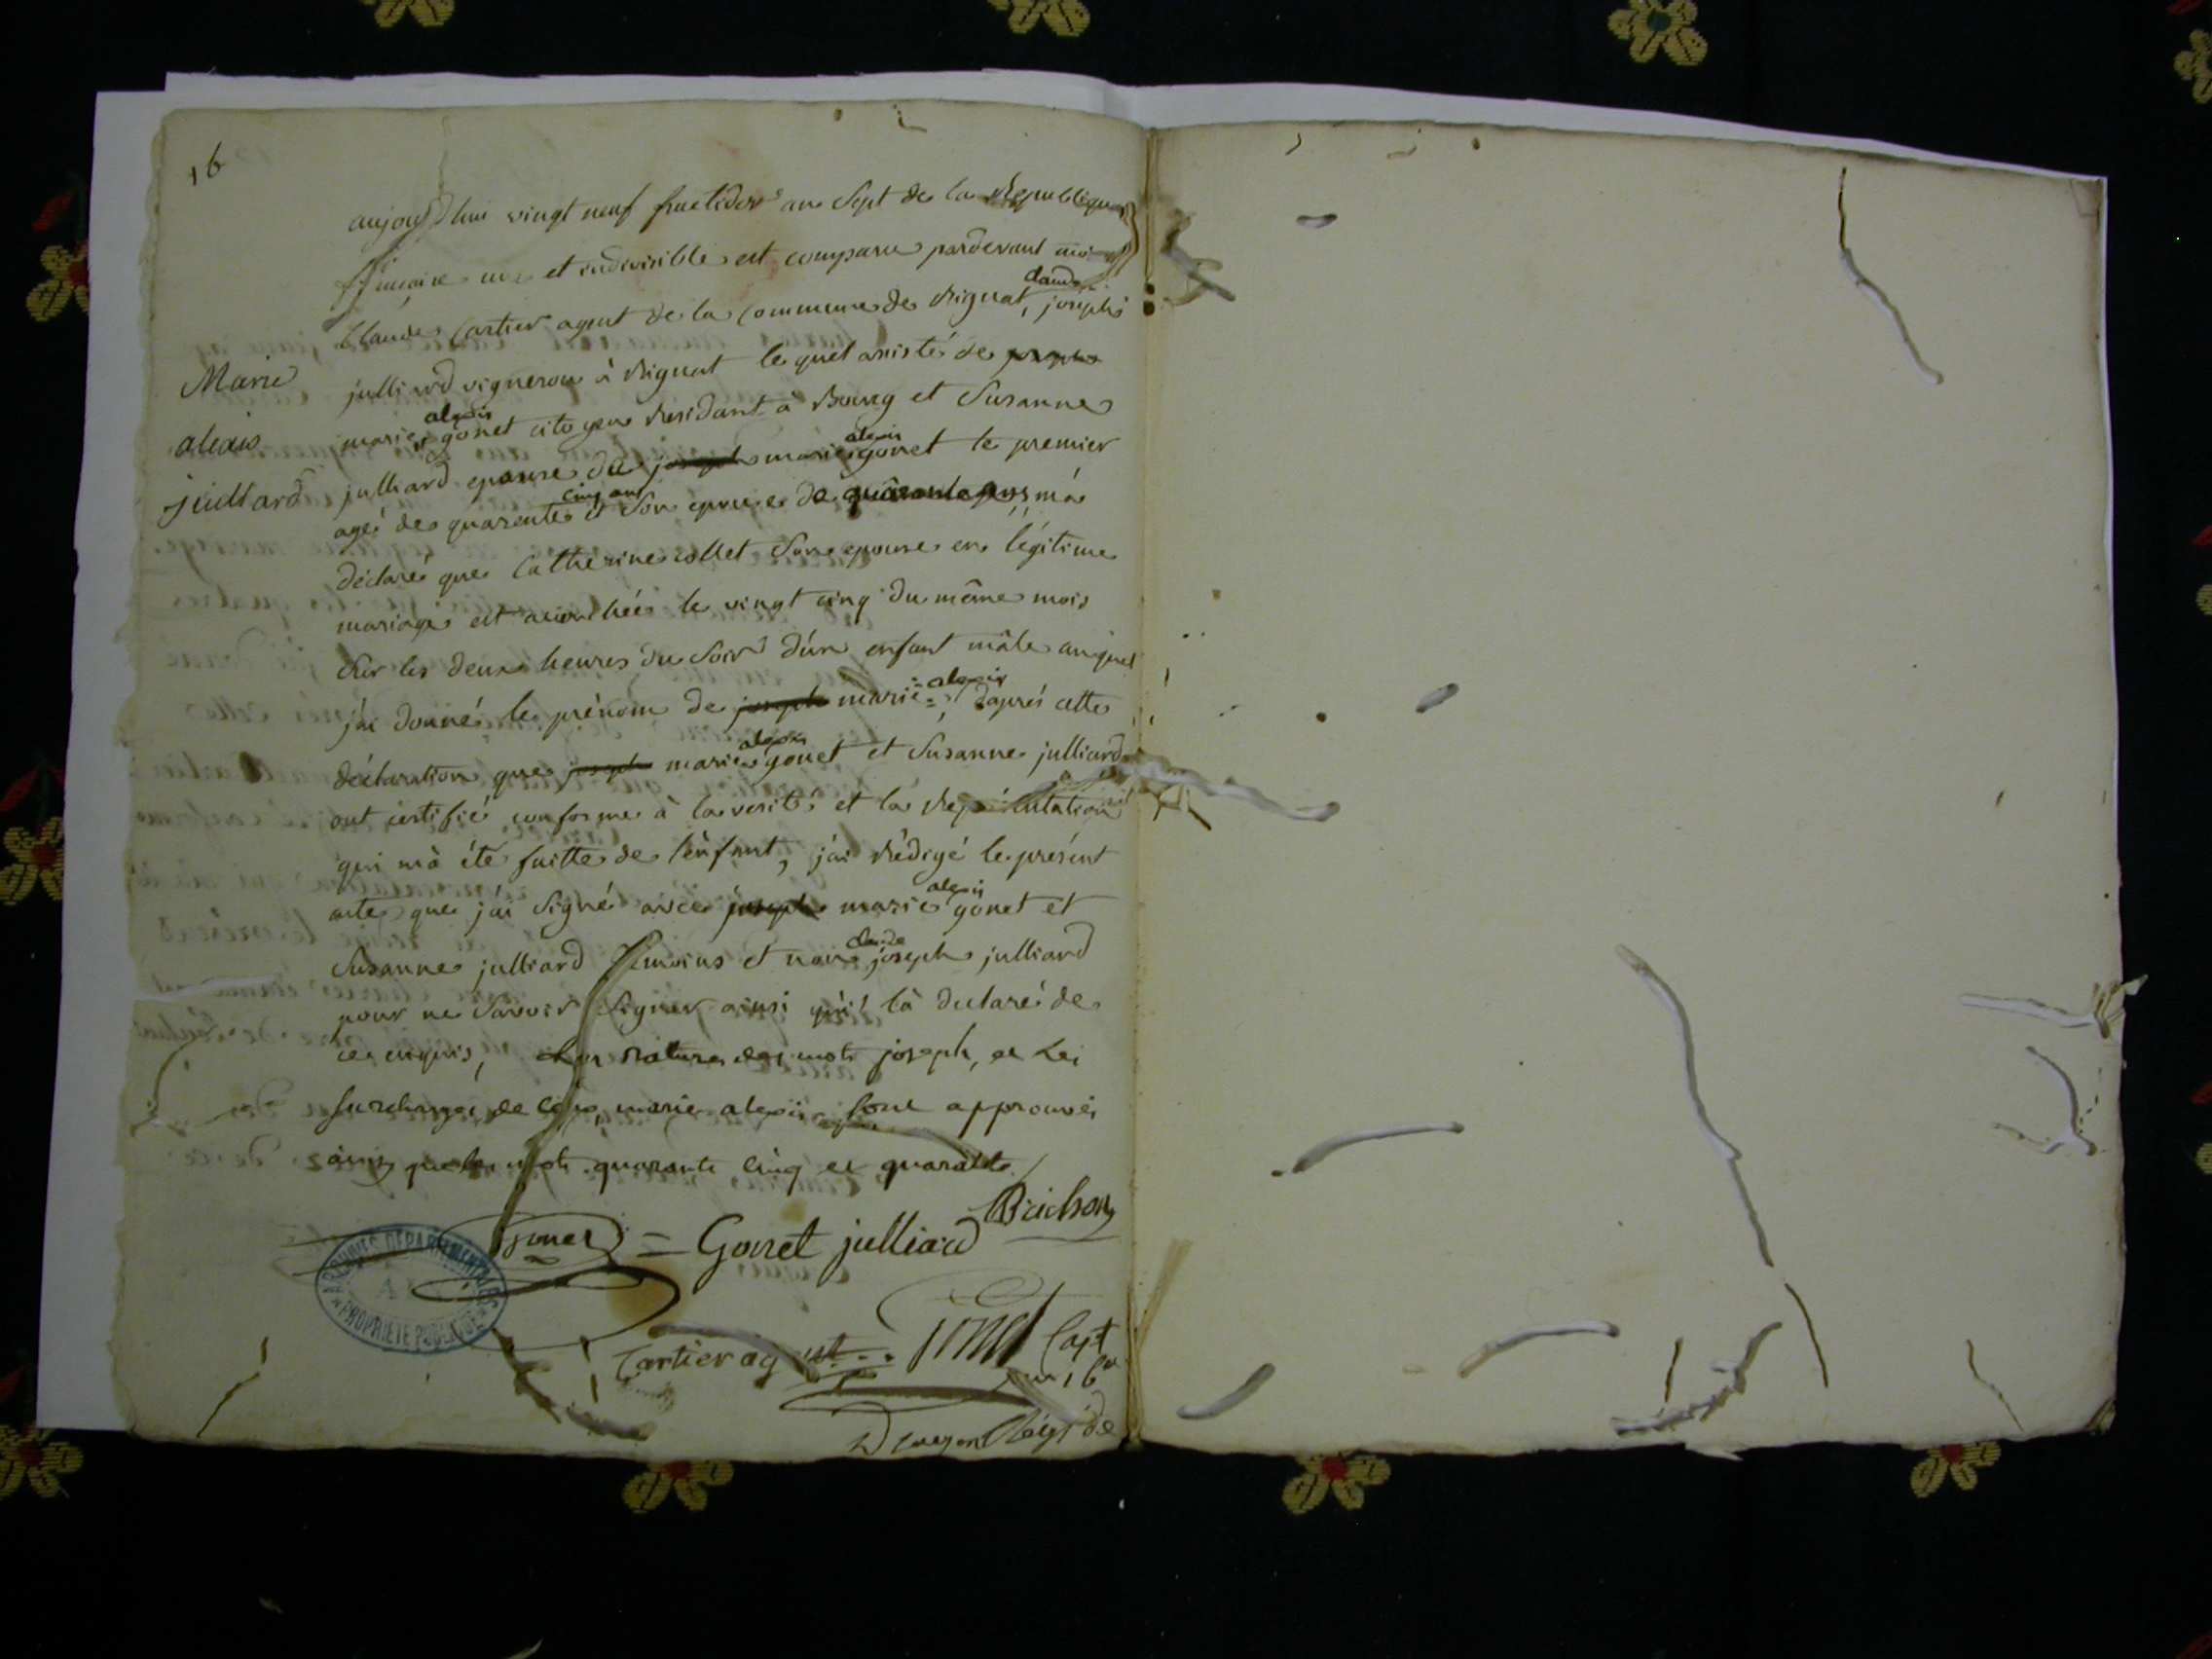 16
aujourd'hui vingt neuf fructidor an Sept de la Republique
francaise une et indivisible est comparu pardevant moi
Claude Cartier agent de la Commune de Rignat, joseph claude
Marie
alexis
juillard
julliard vigneron à Rignat le quel assisté de joseph
marie alexis gonet citoyen residant à Bourg et Susanne
julliard epouse du joseph marie alexis gonet le premier
agé de quarente cinq ans et Son epouse de quarante ans m'a
déclaré que Catherine collet Son epouse en légitime
mariage est accouchée le vingt cinq du même mois
Sur les deux heures du Soir d'un enfant mâle auquel
j'ai donné le prénom de joseph marie = alexis d'aprés cette
déclaration que joseph marie alexis gonet et Susanne julliard
ont certifié conforme à la verité et la Representation
qui m'à été faitte de l'enfant, j'ai Rédigé le présent
acte que j'ai Signé avec joseph marie alexis gonet et
Susanne julliard témoins et non joseph claude julliard
pour ne Savoir Signer ainsi qu'il l'à declaré de
ce enquis, les Ratures des mots joseph, et les
surcharges de marie alexis sont approuvés
ainsi que les mots quarante cinq et quarante
Bachon
gonet = Gonet julliard
Cartier agent
gonet Capt
16
Dragon
ARCHIVES DEPARTEMENTALES
AIN
PROPRIETE PUBLIQUE